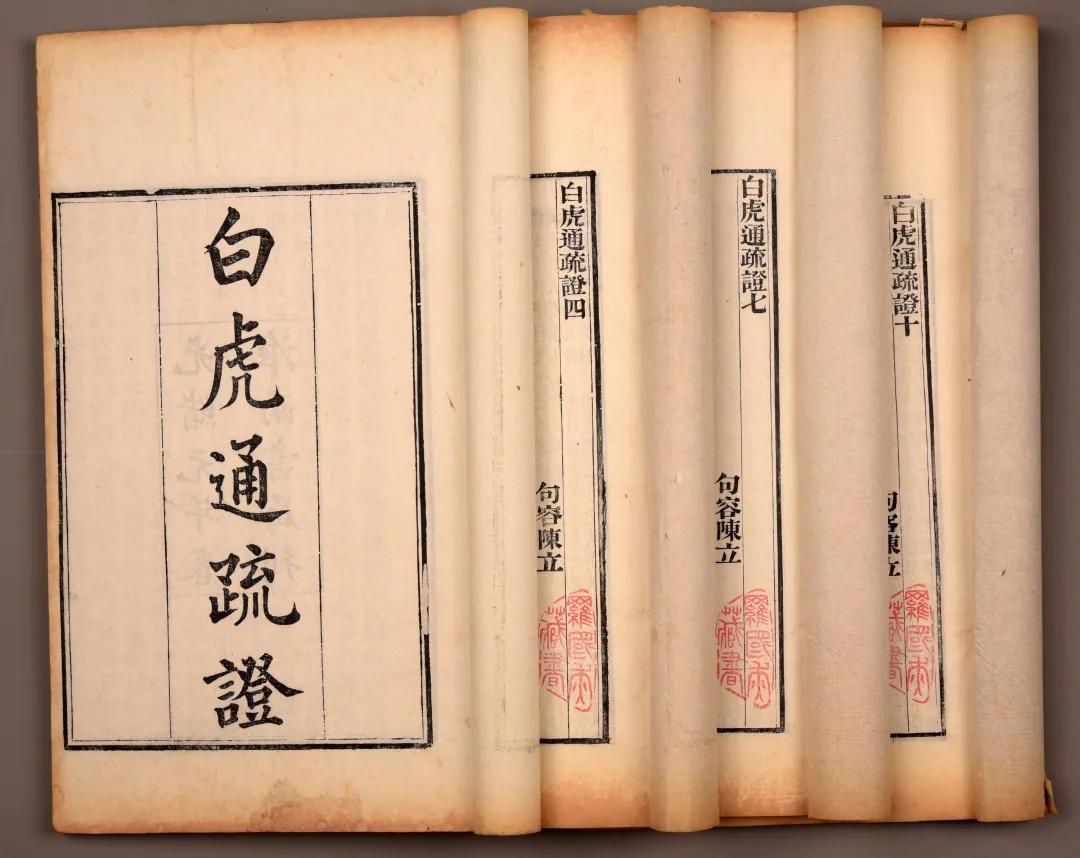 白虎通疏證
白虎通疏證四
句容陳立
羅國
藏書
白虎通疏證七
句容陳立
羅國
藏書
白虎通疏證十
句容陳立
羅國
藏書